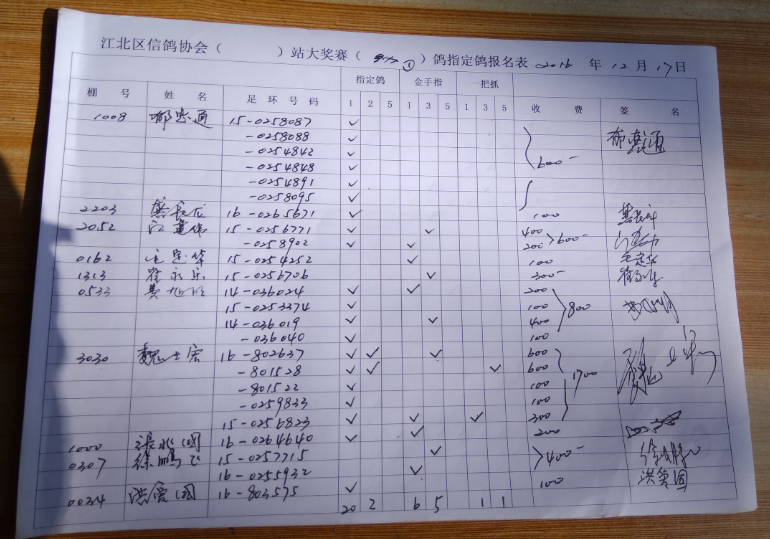 江北区信鸽协会（ ）站大奖赛（ ①）鸽指定鸽报名表 2016 年 12 月 17 日
指定鸽 金手指 一把抓
棚号 姓名 足环号码 1 2 5 1 3 5 1 3 5 收费 签名
1008 15-0258087 ✓
-0258088 ✓
-0254842 ✓
-0254848 ✓ 600-
-0254891 ✓
-0258095 ✓
2203 16-0265671 ✓ 100
2052 15-0256771 ✓ ✓ 400
-0258922 ✓ ✓ 200 >600-
0162 15-0254252 ✓ 100
1313 15-0256706 ✓ 300-
0533 14-036024 ✓ ✓ 200
15-0253374 ✓ 100 800
14-036019 ✓ ✓ 400
-036040 ✓ 100
3030 魏士宏 16-802637 ✓ ✓ ✓ 600
-801528 ✓ ✓ ✓ 600
-801522 ✓ 100 1700
-0259833 ✓ 100
15-0256823 ✓ ✓ ✓ 300
1000 张兆国 16-0264640 ✓ ✓ 200
0307 徐鹏飞 15-0257715 ✓ >400-
16-0255932 ✓
0034 洪爱国 16-803575 ✓ 100 洪爱国
20 2 6 5 1 1